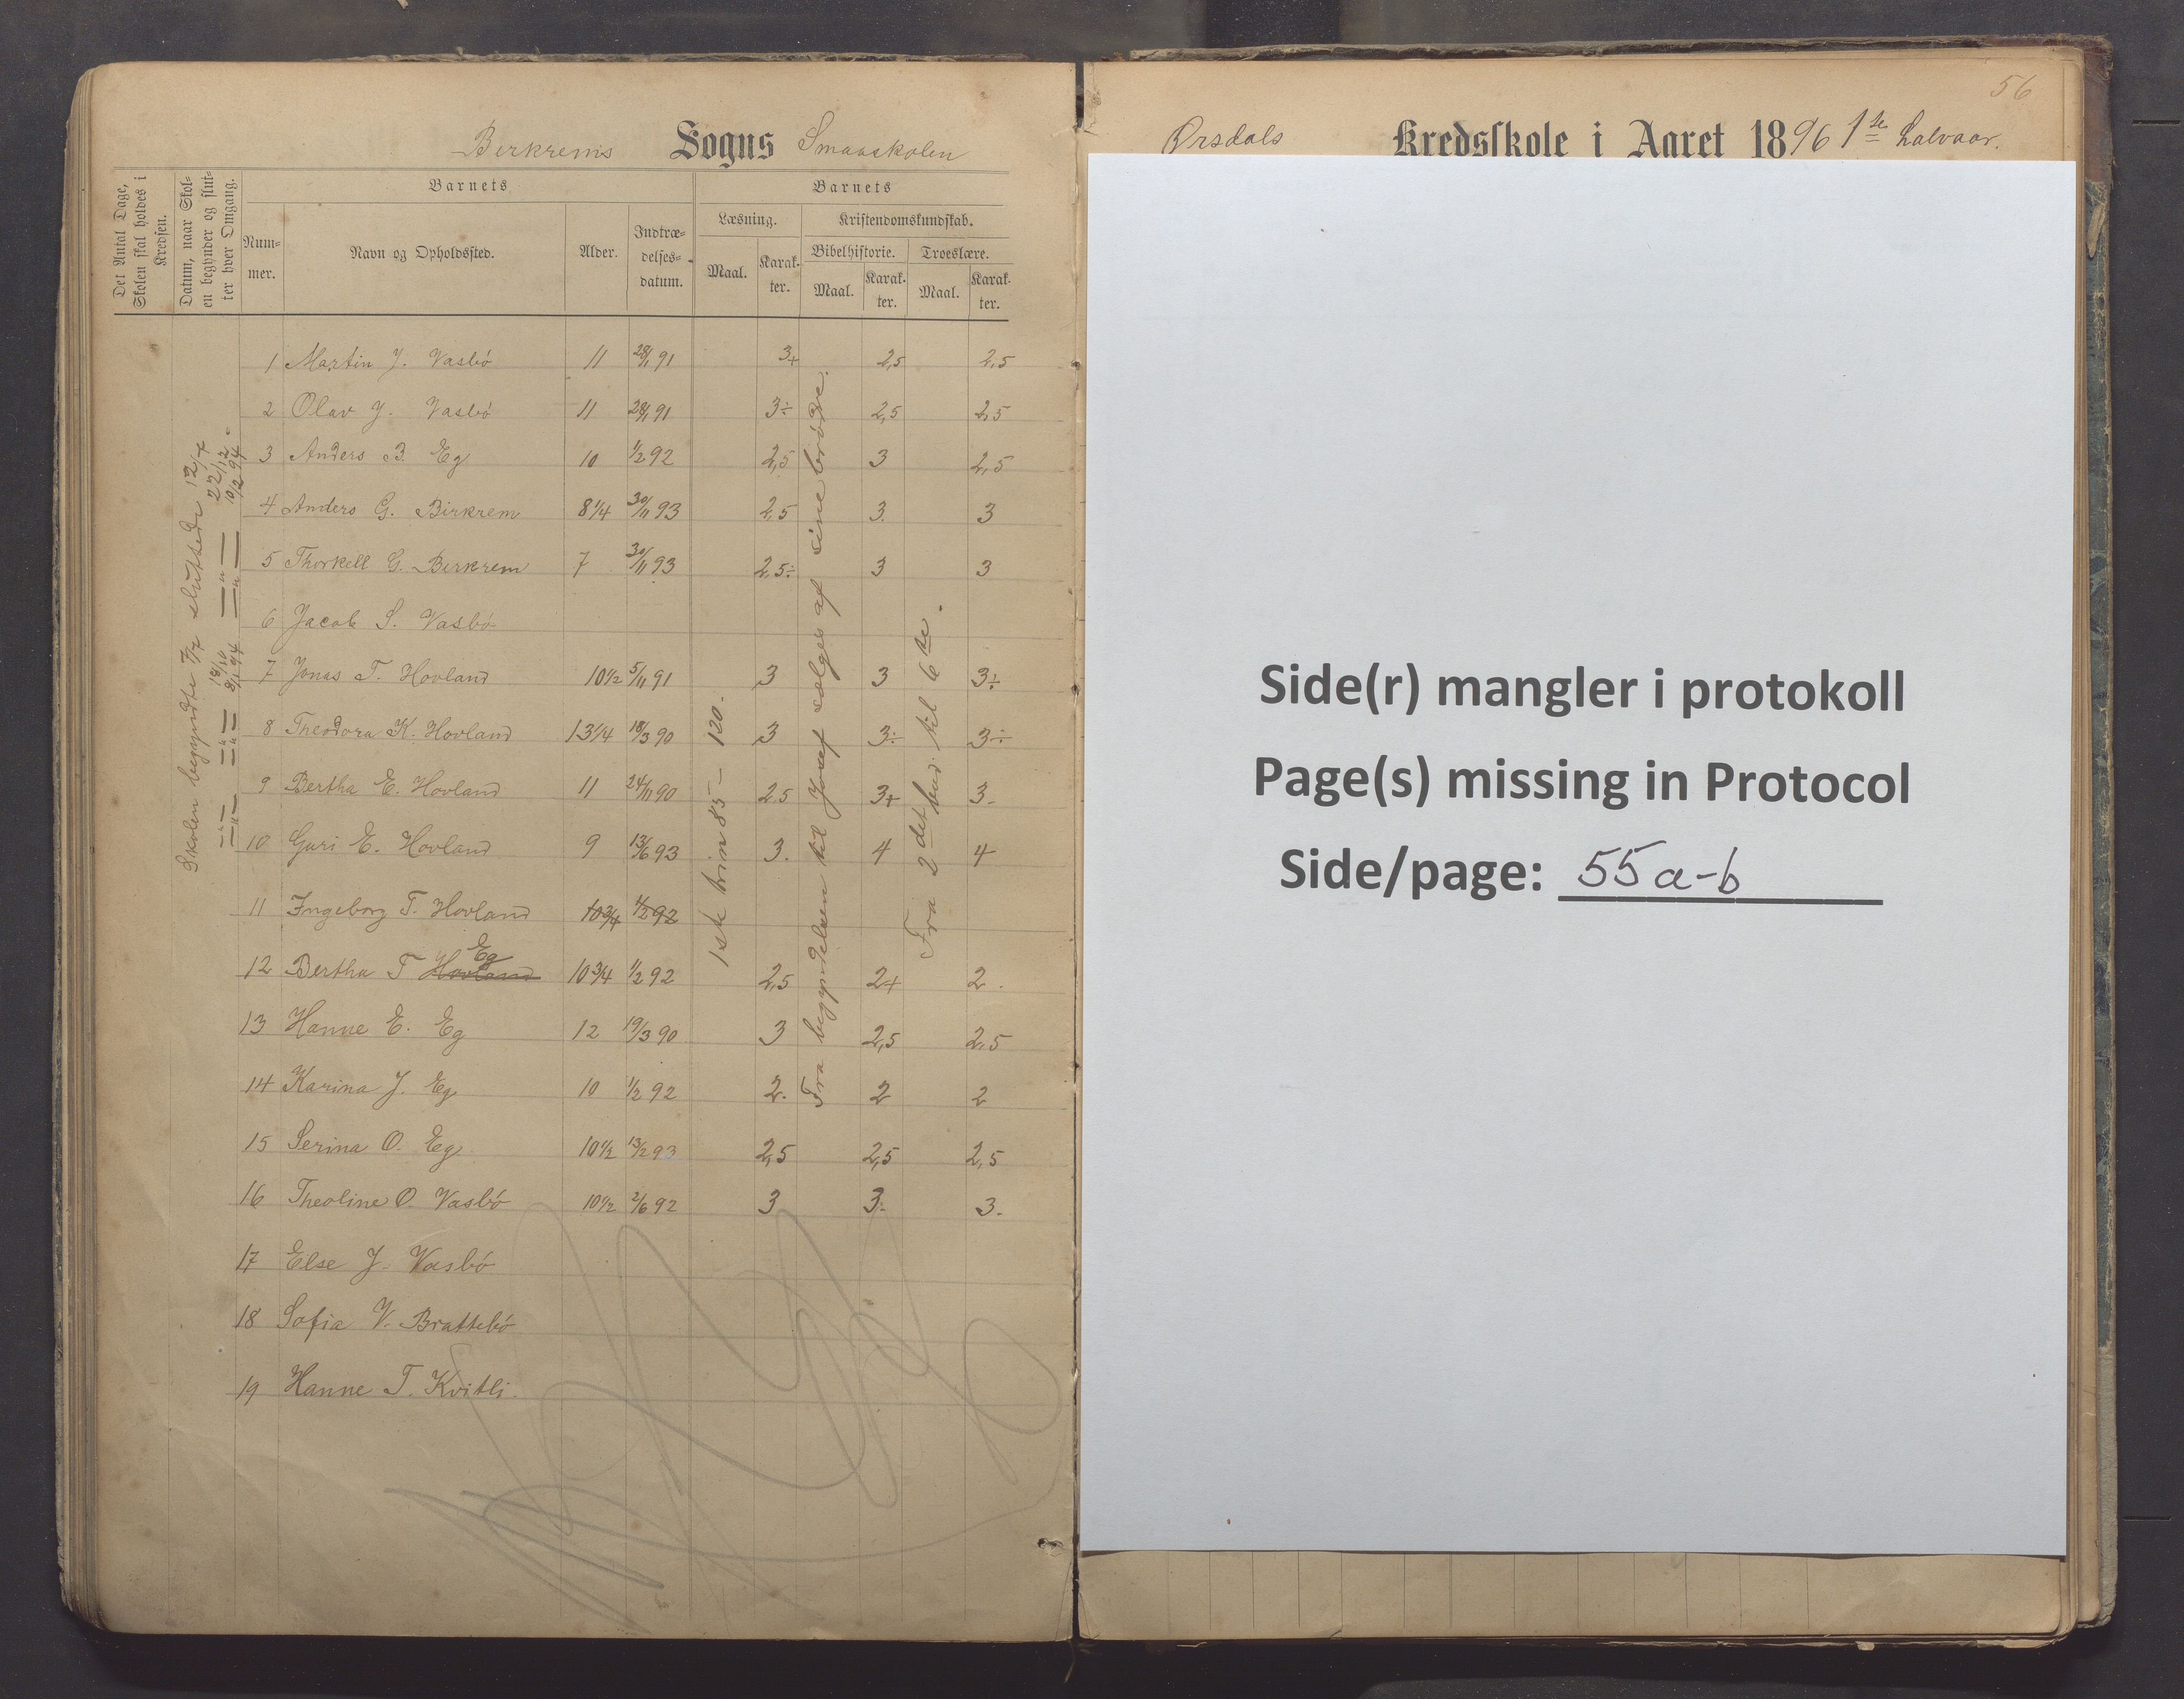 Birkrems Sogns Smaaskolen
Det Antal Dage, Skolen skal holdes i Kredsen.
Datum, naar Skolen begynder og slutter hver Omgang.
Barnets
Barnets
Nummer.
Navn og Opholdssted.
Alder.
Indtrædelsesdatum.
Læsning.
Kristendomskundskab.
Bibelhistorie.
Troeslære.
Maal.
Karakter.
Maal.
Karakter.
Maal.
Karakter.
1 Martin J. Vasbö 11 28/1 91 3+ 2,5 2,5
2 Olav J. Vasbö 11 28/1 91 3÷ 2,5 2,5
3 Anders B. Eg 10 1/2 92 2,5 3 2,5
4 Anders G. Birkrem 8 1/4 30/11 93 2,5 3. 3
5 Thorkell G. Birkrem 7 30/11 93 2,5÷ 3 3
6 Jacob S. Vasbö
7 Jonas T. Hovland 10 1/2 5/11 91 3 3 3÷
8 Theodora K. Hovland 13 1/4 18/3 90 3 3÷ 3÷
9 Bertha E. Hovland 11 24/11 90 2.5 3+ 3-
10 Guri E. Hovland 9 13/6 93 3. 4 4
11 Ingeborg T. Hovland 10 3/4 1/2 92
12 Bertha T Hovland Eg 10 3/4 1/2 92 2,5 2+ 2.
13 Hanne E. Eg 12 19/3 90 3 2,5 2,5
14 Karina J. Eg 10 1/2 92 2. 2 2
15 Serina O. Eg 10 1/2 13/2 93 2,5 2,5 2,5
16 Theoline O. Vasbö 10 1/2 2/6 92 3 3. 3.
17 Else J. Vasbö
18 Sofia V. Brattebö
19 Hanne T. Kvitli.
Skolen begyndte 7/7 sluttede 12/7
1ste trin 85 – 120.
Fra begyndelsen til Josef sælges af sine brødre.
Fra 2det bud. til 6te.
56
Ørsdals Kredsskole i Aaret 1896 1ste halvaar.
Side(r) mangler i protokoll
Page(s) missing in Protocol
Side/page: 55a-b